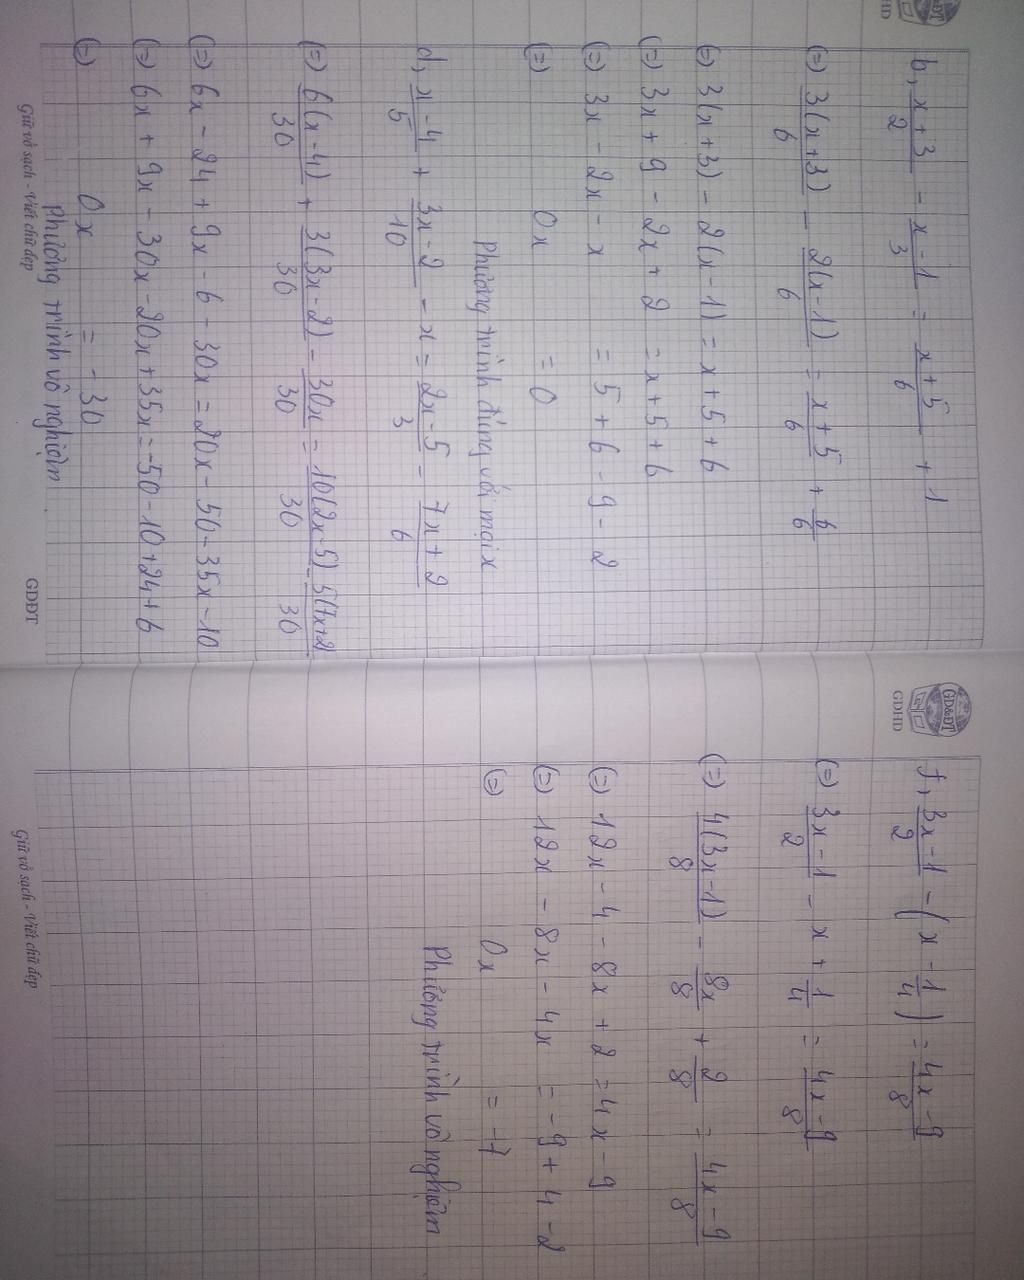 GD&ĐT
GDHD
b, (x+3)/2 - (x-1)/3 = (x+5)/6 + 1
(=) 3(x+3)/6 - 2(x-1)/6 = (x+5)/6 + 6/6
(=) 3(x+3) - 2(x-1) = x+5+6
(=) 3x + 9 - 2x + 2 = x+5+6
(=) 3x - 2x - x = 5+6-9-2
(=) 0x = 0
Phương trình đúng với mọi x
d, (x-4)/5 + (3x-2)/10 - x = (2x-5)/3 - (7x+2)/6
(=) 6(x-4)/30 + 3(3x-2)/30 - 30x/30 = 10(2x-5)/30 - 5(7x+2)/30
(=) 6x - 24 + 9x - 6 - 30x = 20x - 50 - 35x - 10
(=) 6x + 9x - 30x - 20x + 35x = -50 - 10 + 24 + 6
(=) 0x = -30
Phương trình vô nghiệm
Giữ vở sạch - Viết chữ đẹp
GDĐT
GD&ĐT
GDHD
f, (3x-1)/2 - (x - 1/4) = (4x-9)/8
(=) (3x-1)/2 - x + 1/4 = (4x-9)/8
(=) 4(3x-1)/8 - 8x/8 + 2/8 = (4x-9)/8
(=) 12x - 4 - 8x + 2 = 4x - 9
(=) 12x - 8x - 4x = -9 + 4 - 2
(=) 0x = -7
Phương trình vô nghiệm
Giữ vở sạch - Viết chữ đẹp